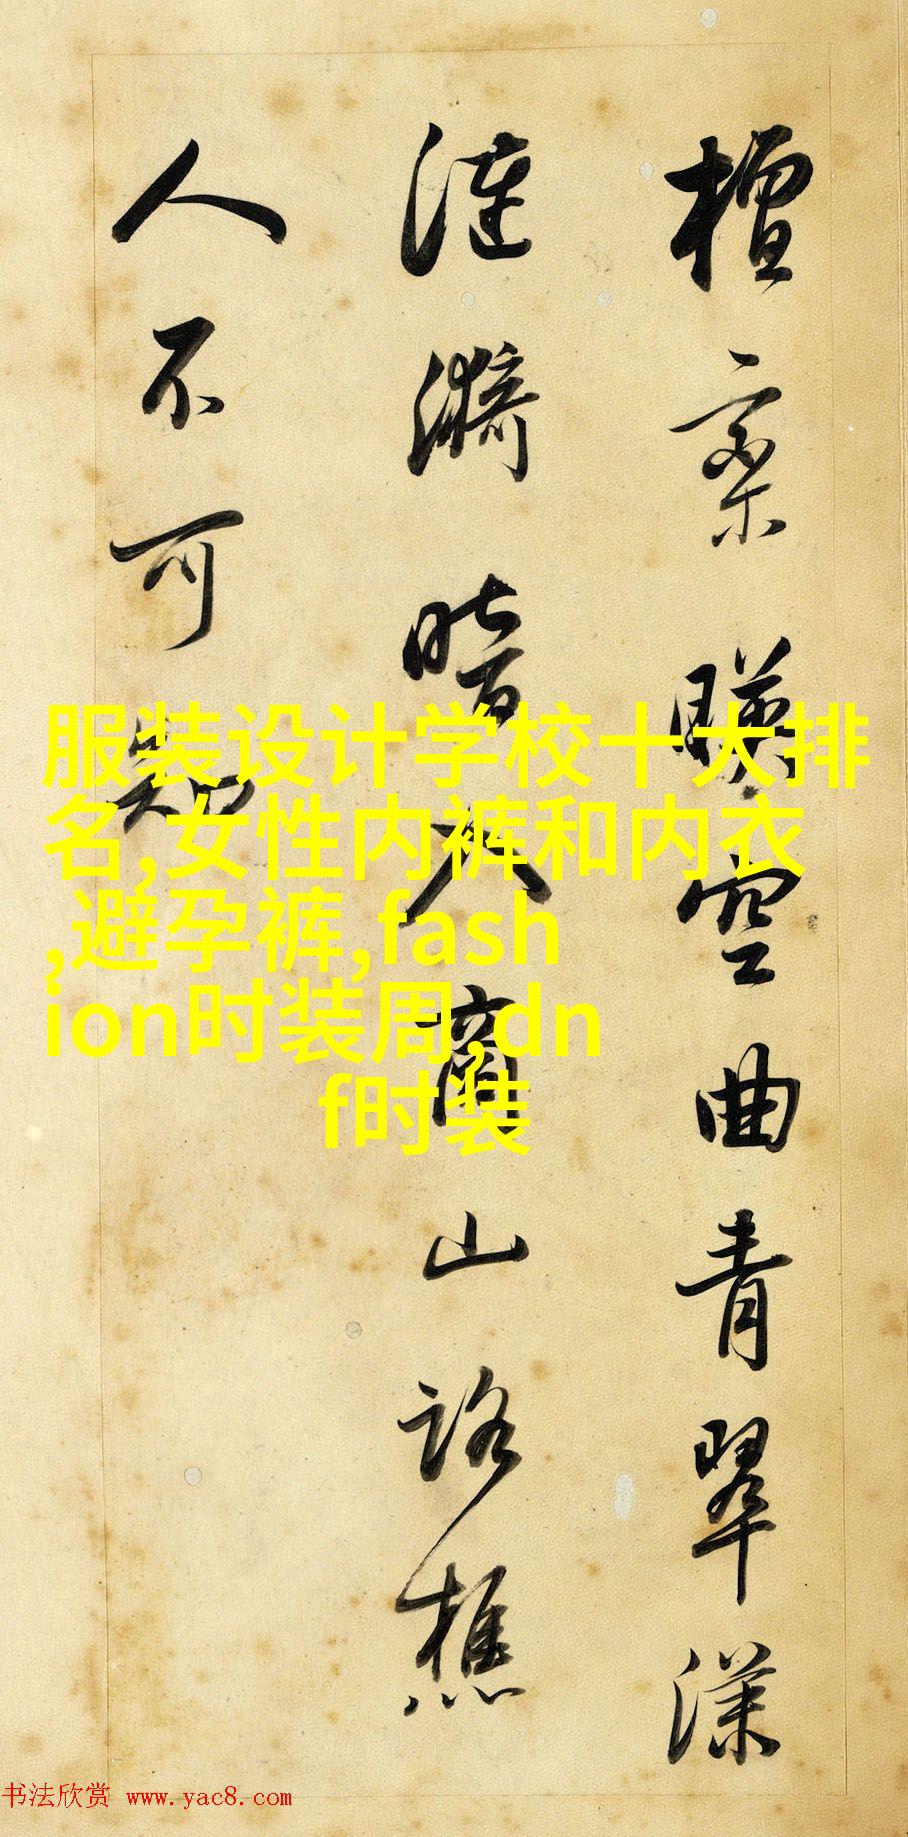 檀栾暎空曲青翠漾
漣漪暗入商山路樵
人不可知
服装设计学校十大排
名,女性内裤和内衣
,避孕裤,fash
ion时装周,dn
f时装
书法欣赏 www.yac8.com